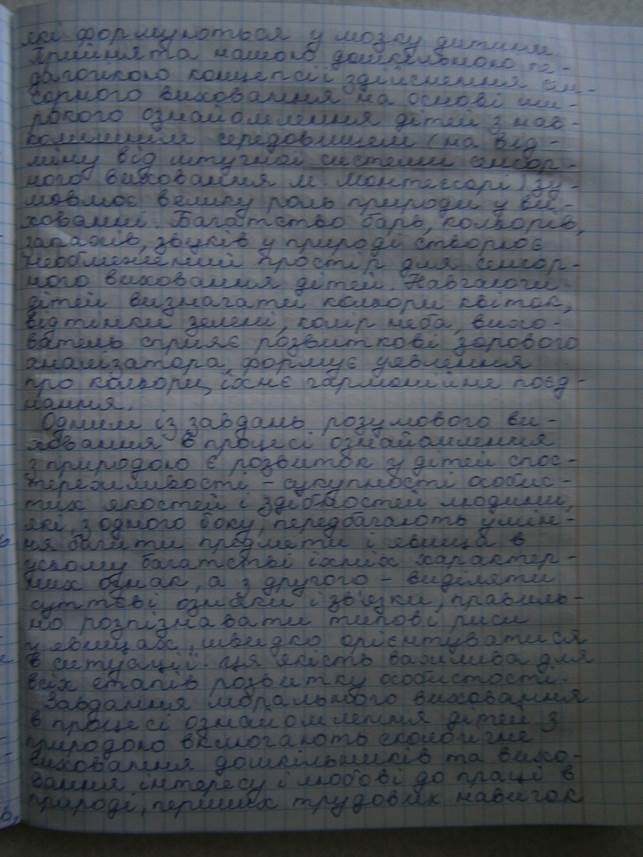 які формуються у мозку дитини
Прийнята нашою дошкільною пе-
дагогікою концепсії здійснення сен-
сорного виховання на основі ши-
рокого ознайомлення дітей з нав-
колишнім середовищем (на від-
міну від штучної системи сенсор-
ного виховання М. Монтессорі) зу-
мовлює велику роль природи у ви-
хованні. Багатство барв, кольорів,
запахів, звуків у природі створює
необмежений простір для сенсор-
ного виховання дітей. Навчаючи
дітей визначати кольори квіток,
відтінки зелені, колір неба, вихо-
ватель сприяє розвиткові зорового
аналізатора, формує уявлення
про кольори, їхнє гармонійне поєд-
нання.
Одним із завдань розумового ви-
ховання в процесі ознайомлення
з природою є розвиток у дітей спос-
тережливості - сукупності особис-
тих якостей і здібностей людини,
які, з одного боку, передбачають умін-
ня бачити предмети і явища в
усьому багатстві їхніх характер-
них ознак, а з другого - виділяти
суттєві ознаки і зв'язки, правиль-
но розпізнавати типові риси
у явищах, швидко орієнтуватися
в ситуації. Ця якість важлива для
всіх етапів розвитку особистості.
Завдання морального виховання
в процесі ознайомлення дітей з
природою включають екологічне
виховання дошкільників та вихо-
вання інтересу і любові до праці в
природі, перших трудових навичок